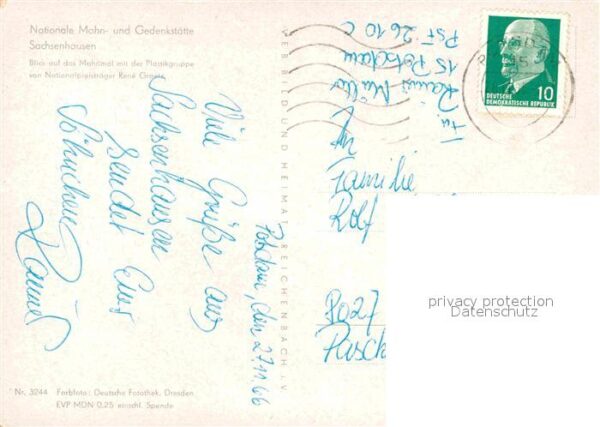 Nationale Mahn- und Gedenkstätte
Sachsenhausen
Blick auf das Mahnmal mit der Plastikgruppe
von Nationalpreisträger René Graetz
Viele Grüße aus
Sachsenhausen
sendet Euch
Söhnchen
Rainer
Potsdam, den 27.11.66
VEB BILD UND HEIMAT REICHENBACH i. V.
Rainer Müller
15 Potsdam
PSF 2610 C
Familie
Rolf
8027
10
DEUTSCHE
DEMOKRATISCHE REPUBLIK
privacy protection
Datenschutz
Nr. 3244 Farbfoto: Deutsche Fotothek, Dresden
EVP MDN 0,25 einschl. Spende